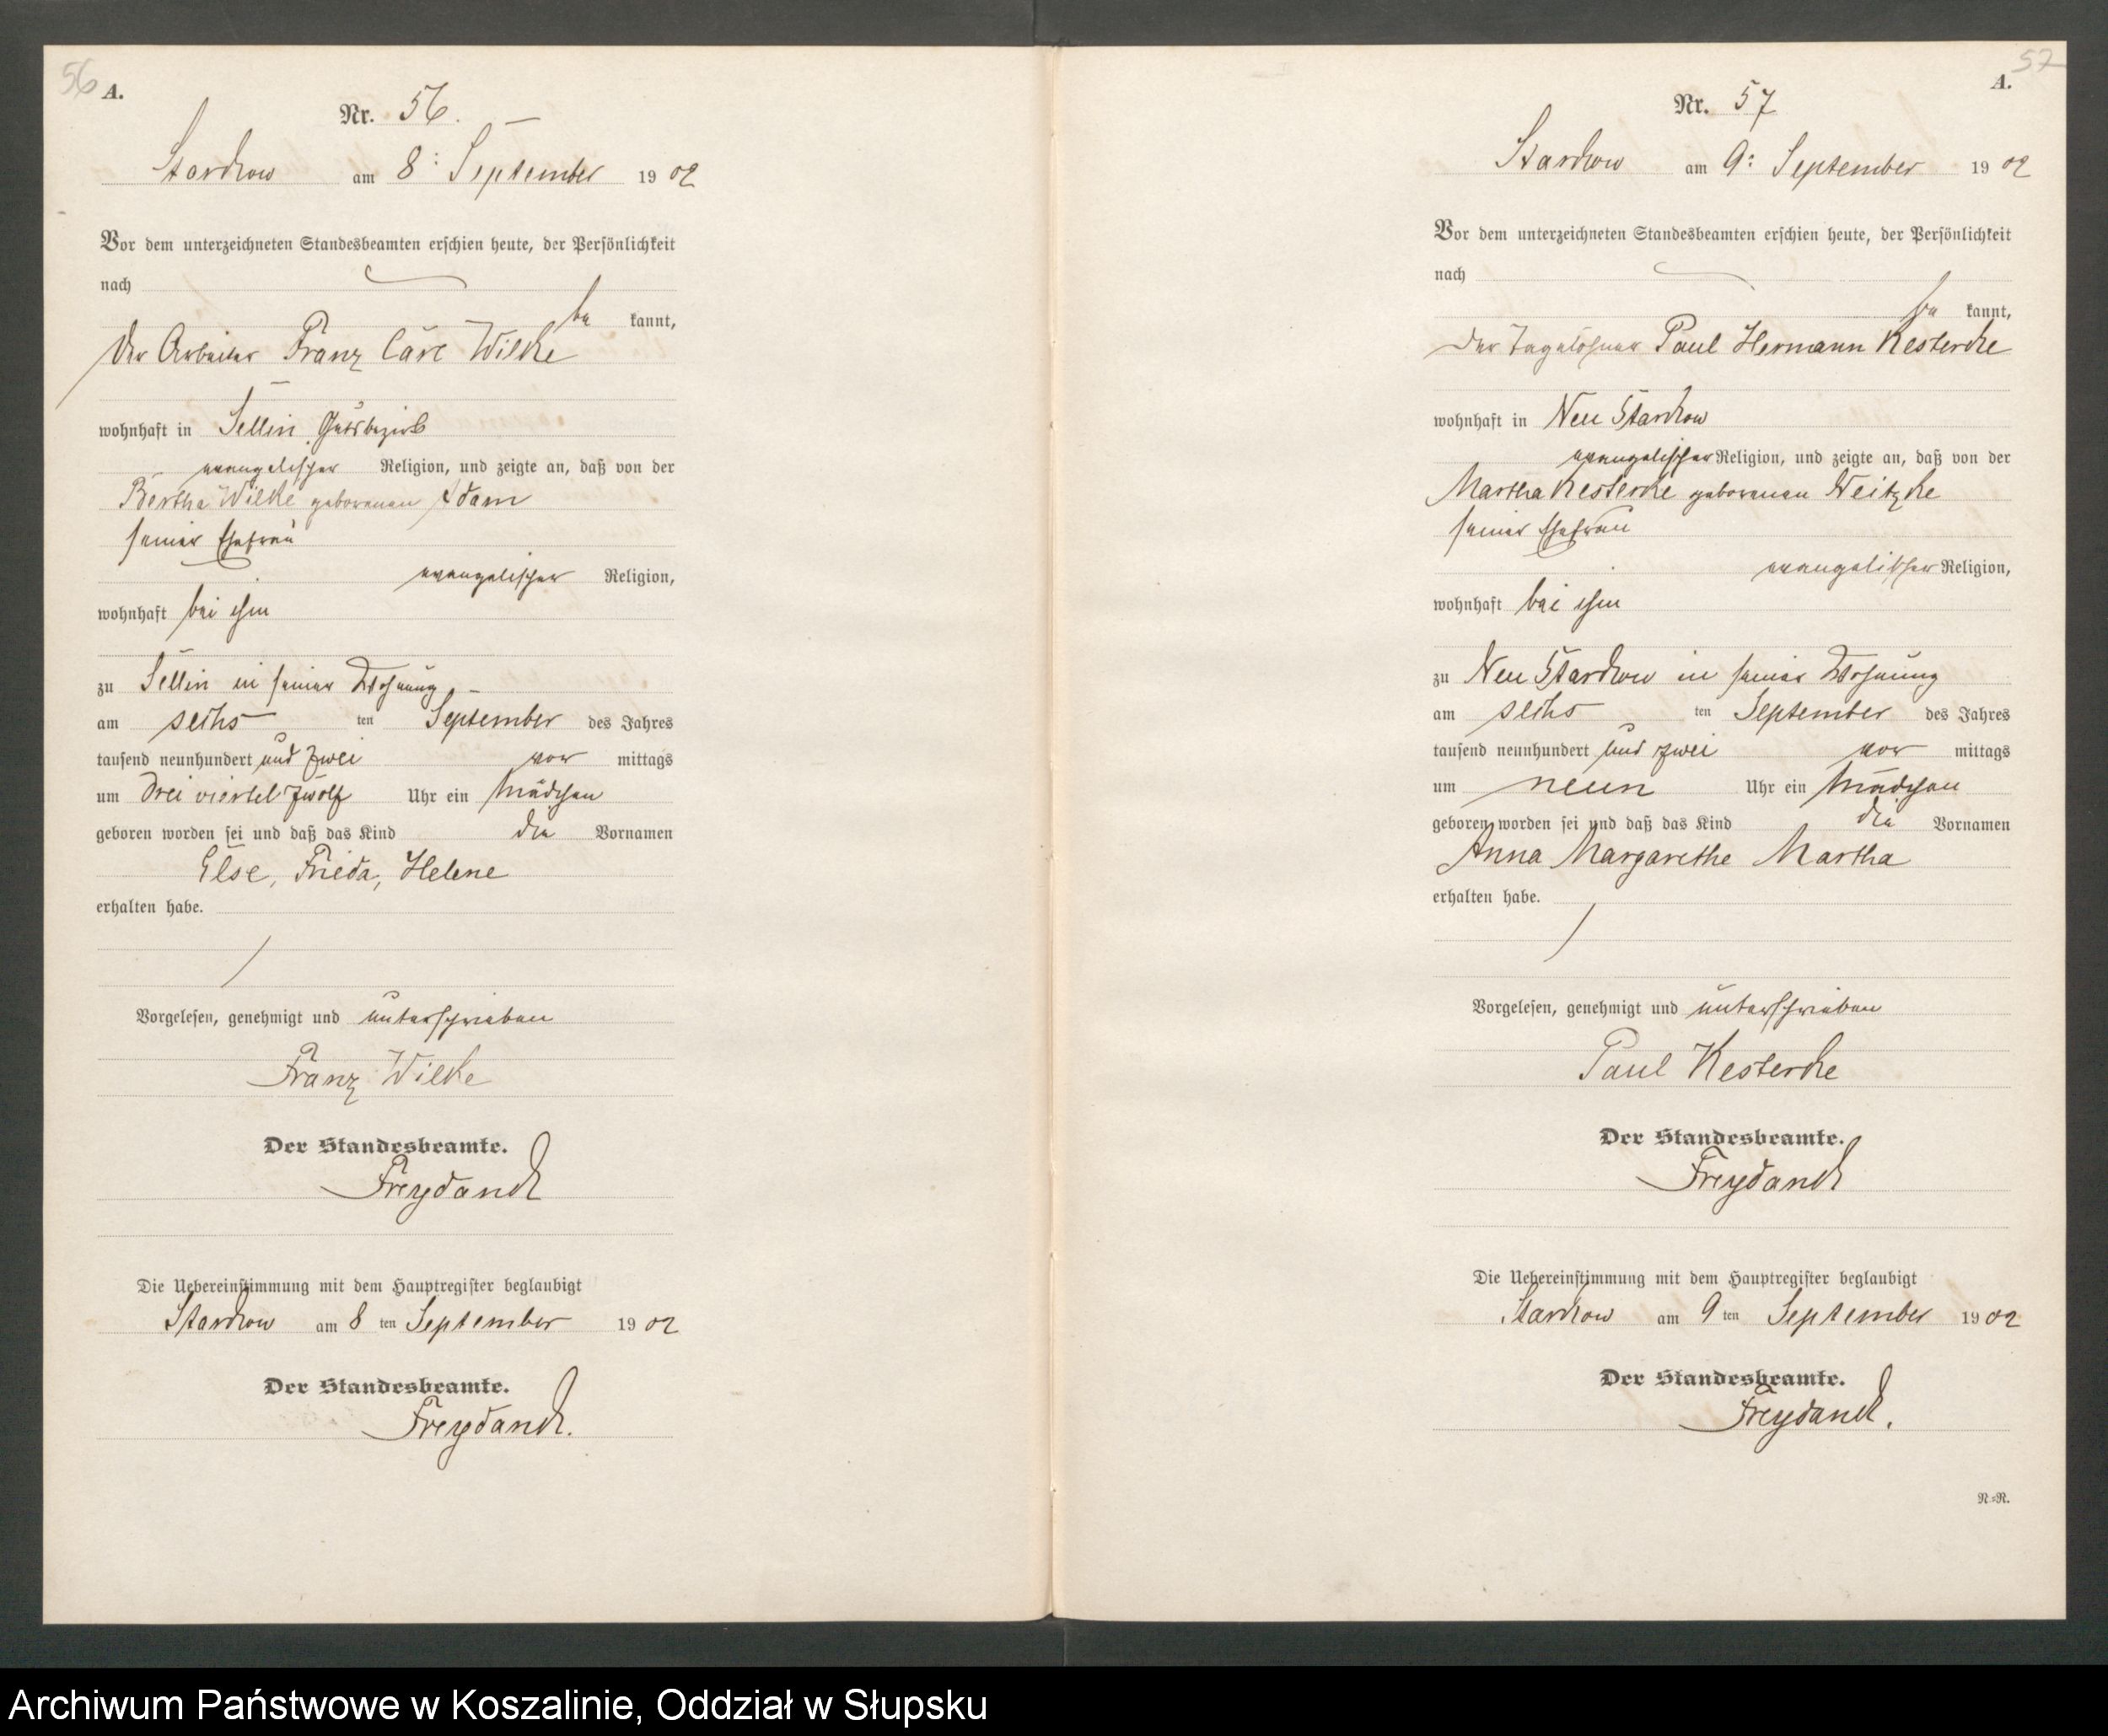 56
A.
Nr. 56.
Starckow am 8: September 1902
Vor dem unterzeichneten Standesbeamten erschien heute, der Persönlichkeit
nach
be kannt,
der Arbeiter Franz Carl Wilke
wohnhaft in Sellin Gutsbezirk
evangelischer Religion, und zeigte an, daß von der
Bertha Wilke geborenen Adam
seiner Ehefrau
evangelischer Religion,
wohnhaft bei ihm
zu Sellin in seiner Wohnung
am sechs ten September des Jahres
tausend neunhundert und zwei vor mittags
um drei viertel zwölf Uhr ein Mädchen
geboren worden sei und daß das Kind die Vornamen
Else, Frieda, Helene
erhalten habe.
Vorgelesen, genehmigt und unterschrieben
Franz Wilke
Der Standesbeamte.
Freydanck
Die Uebereinstimmung mit dem Hauptregister beglaubigt
Starckow am 8 ten September 1902
Der Standesbeamte.
Freydanck.
57
A.
Nr. 57
Starckow am 9: September 1902
Vor dem unterzeichneten Standesbeamten erschien heute, der Persönlichkeit
nach
be kannt,
der Tagelöhner Paul Hermann Kesterke
wohnhaft in Neu Starckow
evangelischer Religion, und zeigte an, daß von der
Martha Kesterke geborenen Neitzke
seiner Ehefrau
evangelischer Religion,
wohnhaft bei ihm
zu Neu Starckow in seiner Wohnung
am sechs ten September des Jahres
tausend neunhundert und zwei vor mittags
um neun Uhr ein Mädchen
geboren worden sei und daß das Kind die Vornamen
Anna Margarethe Martha
erhalten habe.
Vorgelesen, genehmigt und unterschrieben
Paul Kesterke
Der Standesbeamte.
Freydanck
Die Uebereinstimmung mit dem Hauptregister beglaubigt
Starckow am 9 ten September 1902
Der Standesbeamte.
Freydanck.
N.=R.
Archiwum Państwowe w Koszalinie, Oddział w Słupsku